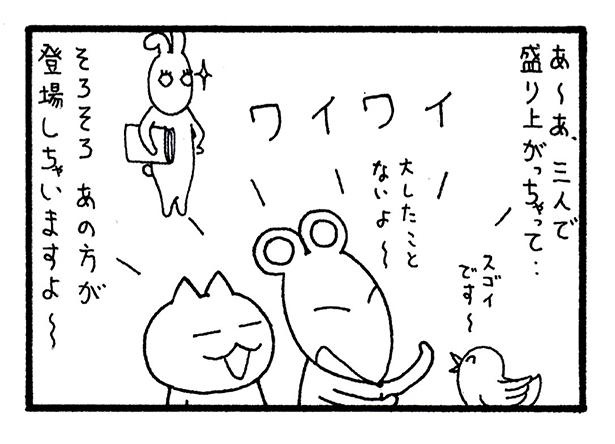 あ〜あ、三人で
盛り上がっちゃって‥
ワイワイ
大したこと
ないよ〜
スゴイ
です〜
そろそろ あの方が
登場しちゃいますよ〜